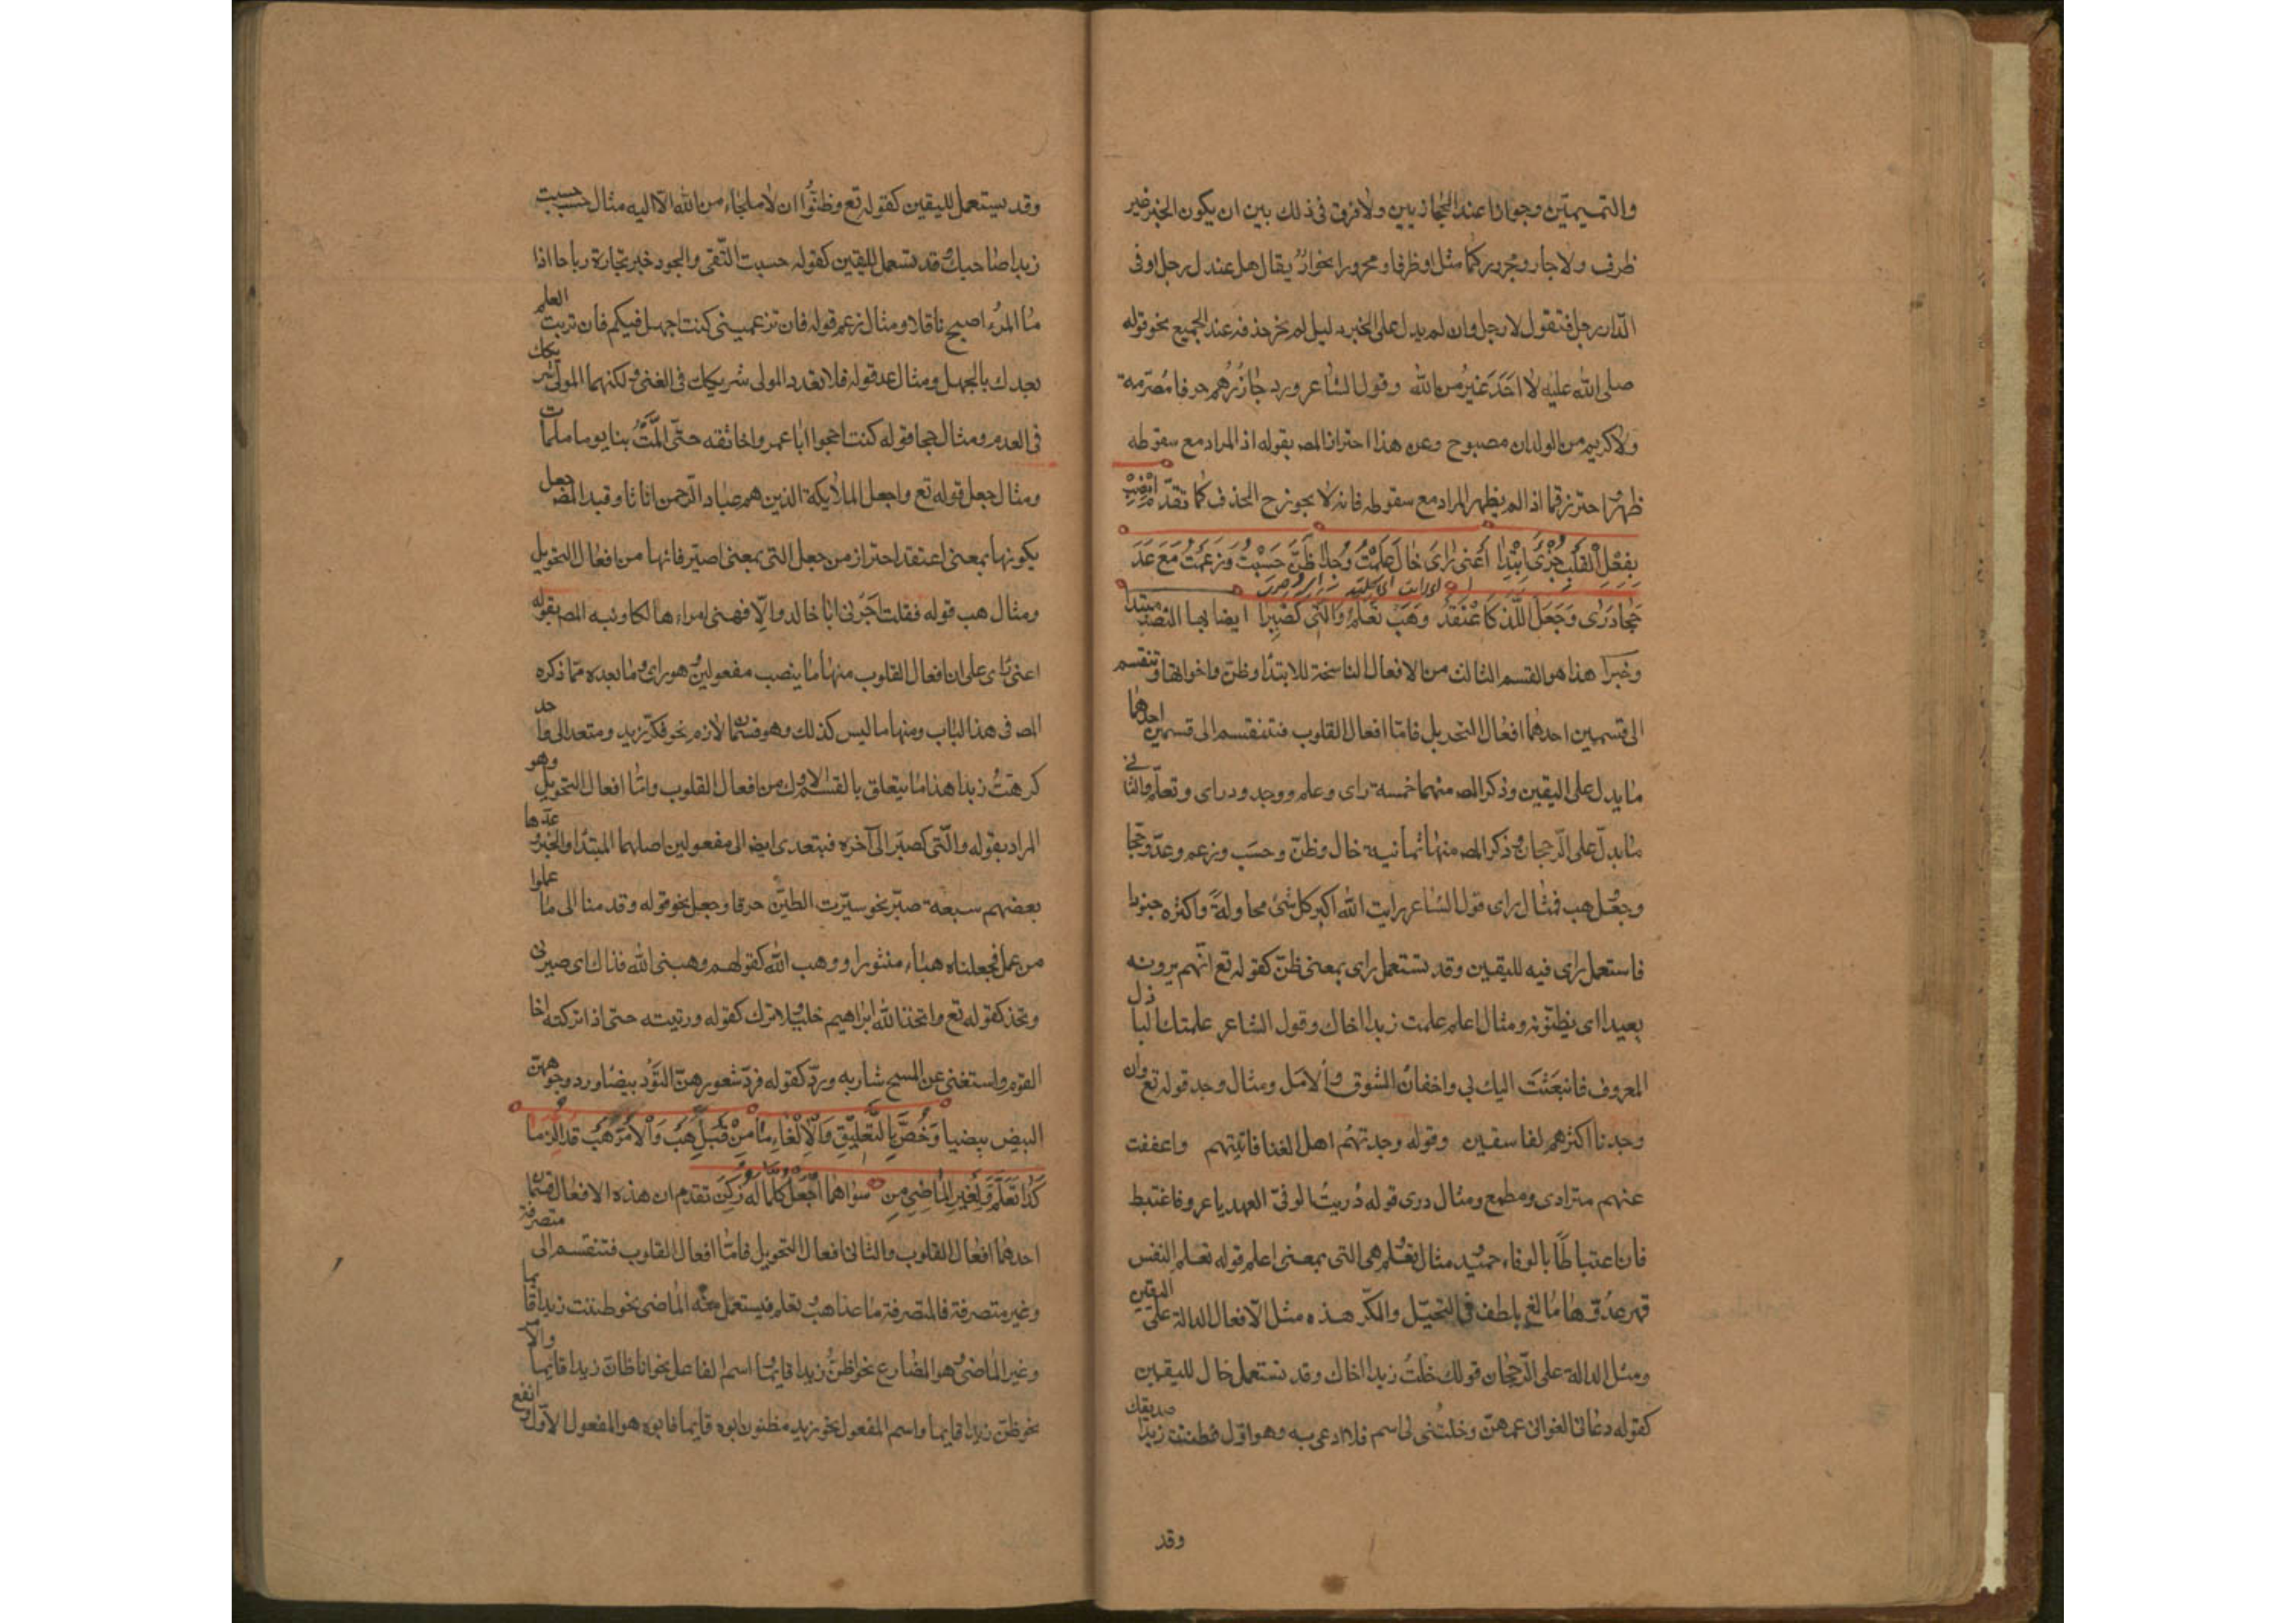 والتميميتين وجوازا عند الحجازيين ولا فرق في ذلك بين ان يكون الخبر غير
ظرف ولا جار ومجرور كما مثل او ظرفا ومجرورا نحو ان يقال هل عندك رجل او في
الدار رجل فتقول لا رجل وان لم يدل على الخبر دليل لم يجز حذفه عند الجميع نحو قوله
صلى الله عليه لا احد غير من الله وقول الشاعر ورد جازرهم حرفا مصرمة
ولا كريم من الولدان مصبوح وعن هذا احترز المص بقوله اذ المراد مع سقوطه
ظهر واحترز مما اذا لم يظهر المراد مع سقوطه فانه لا يجوز ح الحذف كما تقدم انصب
بفعل القلب جزئ ابتدا اعنى راى خال علمت وجدا ظن حسبت وزعمت مع عد
حجا درى وجعل اللذ كاعتقد وهب تعلم والتى كصيرا ايضا بها انصب مبتدا
وخبرا هذا هو القسم الثالث من الافعال الناسخة للابتدا وظن واخواتها وتنقسم
الى قسمين احدهما افعال التحويل فاما افعال القلوب فتنقسم الى قسمين احدهما
ما يدل على اليقين وذكر المص منها خمسة راى وعلم ووجد ودراى وتعلم والثانى
ما يدل على الرجحان وذكر المص منها ثمانية خال وظن وحسب وزعم وعد وحجا
وجعل وهب فمثال راى قول الشاعر رايت الله اكبر كل شئ محاولة واكثره جنودا
فاستعمل راى فيه لليقين وقد تستعمل راى بمعنى ظن كقوله تع انهم يرونه
بعيدا اى يظنونه ومثال اعلم علمت زيدا اخاك وقول الشاعر علمتك الباذل
المعروف فانبعثت اليك بى واخفات الشوق والامل ومثال وجد قوله تع وان
وجدنا اكثرهم لفاسقين وقوله وجدتهم اهل الغنا فاتيتهم واعففت
عنهم متزادى ومطمع ومثال درى قوله دريت الوفى العهد يا عرو فاغتبط
فان اغتباطا بالوفاء حميد مثال تعلم وهى التى بمعنى اعلم قوله تعلم النفس
قهر عدوها فبالغ بلطف فى التحيل والمكر هذه مثل الافعال الدالة على اليقين
ومثل الدالة على الرجحان قولك خلت زيدا اخاك وقد تستعمل خال لليقين
كقوله دعانى الغوانى عمهن وخلتنى لى اسم فلا ادعى به وهو اول فظننت زيدا صديقك
وقد
وقد يستعمل لليقين كقوله تع وظنوا ان لا ملجاء من الله الا اليه مثال حسب حسبت
زيدا صاحبك وقد تستعمل لليقين كقوله حسبت التقى والجود خير تجارة رباحا اذا
ما المرء اصبح ثاقلا ومثال زعم قوله فان تزعمينى كنت اجهل فيكم فان شريت العلم
بعدك بالجهل ومثال عد قوله فلا تعدد المولى شريكك فى الغنى ولكنما المولى شريكك
فى العدم ومثال حجا قوله كنت احجوا ابا عمرو اخا ثقه حتى المت بنا يوما ملمات
ومثال جعل قوله تع واجعل الملائكة الذين هم عباد الرحمن اناثا وقيد المص جعل
بكونها بمعنى اعتقد احتراز من جعل التى بمعنى صير فانها من افعال التحويل
ومثال هب قوله فقلت اجرنى ابا خالد والا فهبنى امراء هالكا ونبه المص بقوله
اعنى راى على ان افعال القلوب منها ما ينصب مفعولين وهو راى وما بعده مما ذكره
المص فى هذا الباب ومنها ما ليس كذلك وهو قسمان لازم نحو فكر زيد ومتعد الى واحد
كرهت زيدا هذا ما يتعلق بالقسم الاول من افعال القلوب واما افعال التحويل وهو
المراد بقوله والتى كصير الى آخره فيتعدى ايضا الى مفعولين اصلهما المبتدا والخبر وعدها
بعضهم سبعة صير نحو سيرت الطين حرفا وجعل نحو قوله وقدمنا الى ما عملوا
من عمل فجعلناه هباء منثورا ووهب الله كقولهم وهبنى الله فذاك اى صيرنى
وتخذ كقوله تع واتخذ الله ابراهيم خليلا وترك كقوله وربيته حتى اذا تركته اخا
القوم واستغنى عن المسح شاربه ورد كقوله فرد شعورهن السود بيضا ورد وجوههن
البيض بيضيا وخص بالتعليق والالغاء ما من قبل هب والامر هب قد الزما
كذا تعلم ولغير الماضى من سواهما اجعل كلما له زكن تقدم ان هذه الافعال قسمان
احدهما افعال القلوب والثانى افعال التحويل فاما افعال القلوب فتنقسم الى متصرفة
وغير متصرفة فالمتصرفة ما عدا هب وتعلم فيستعمل منه الماضى نحو ظننت زيدا قائما
وغير الماضى وهو المضارع نحو اظن زيدا قايما واسم الفاعل نحو انا ظان زيدا قايما والامر
نحو ظن زيدا قايما واسم المفعول نحو زيد مظنون ابوه قايما فابوه هو المفعول الاول وارتفع